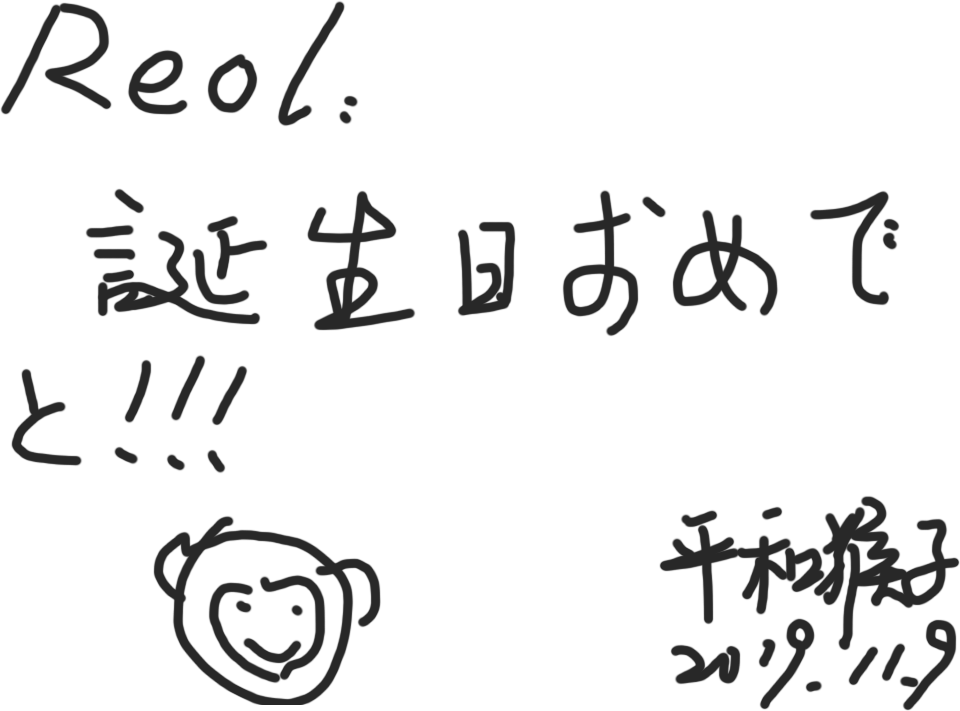 Reol:
誕生日おめで
と!!!
平和猴子
2019.11.9